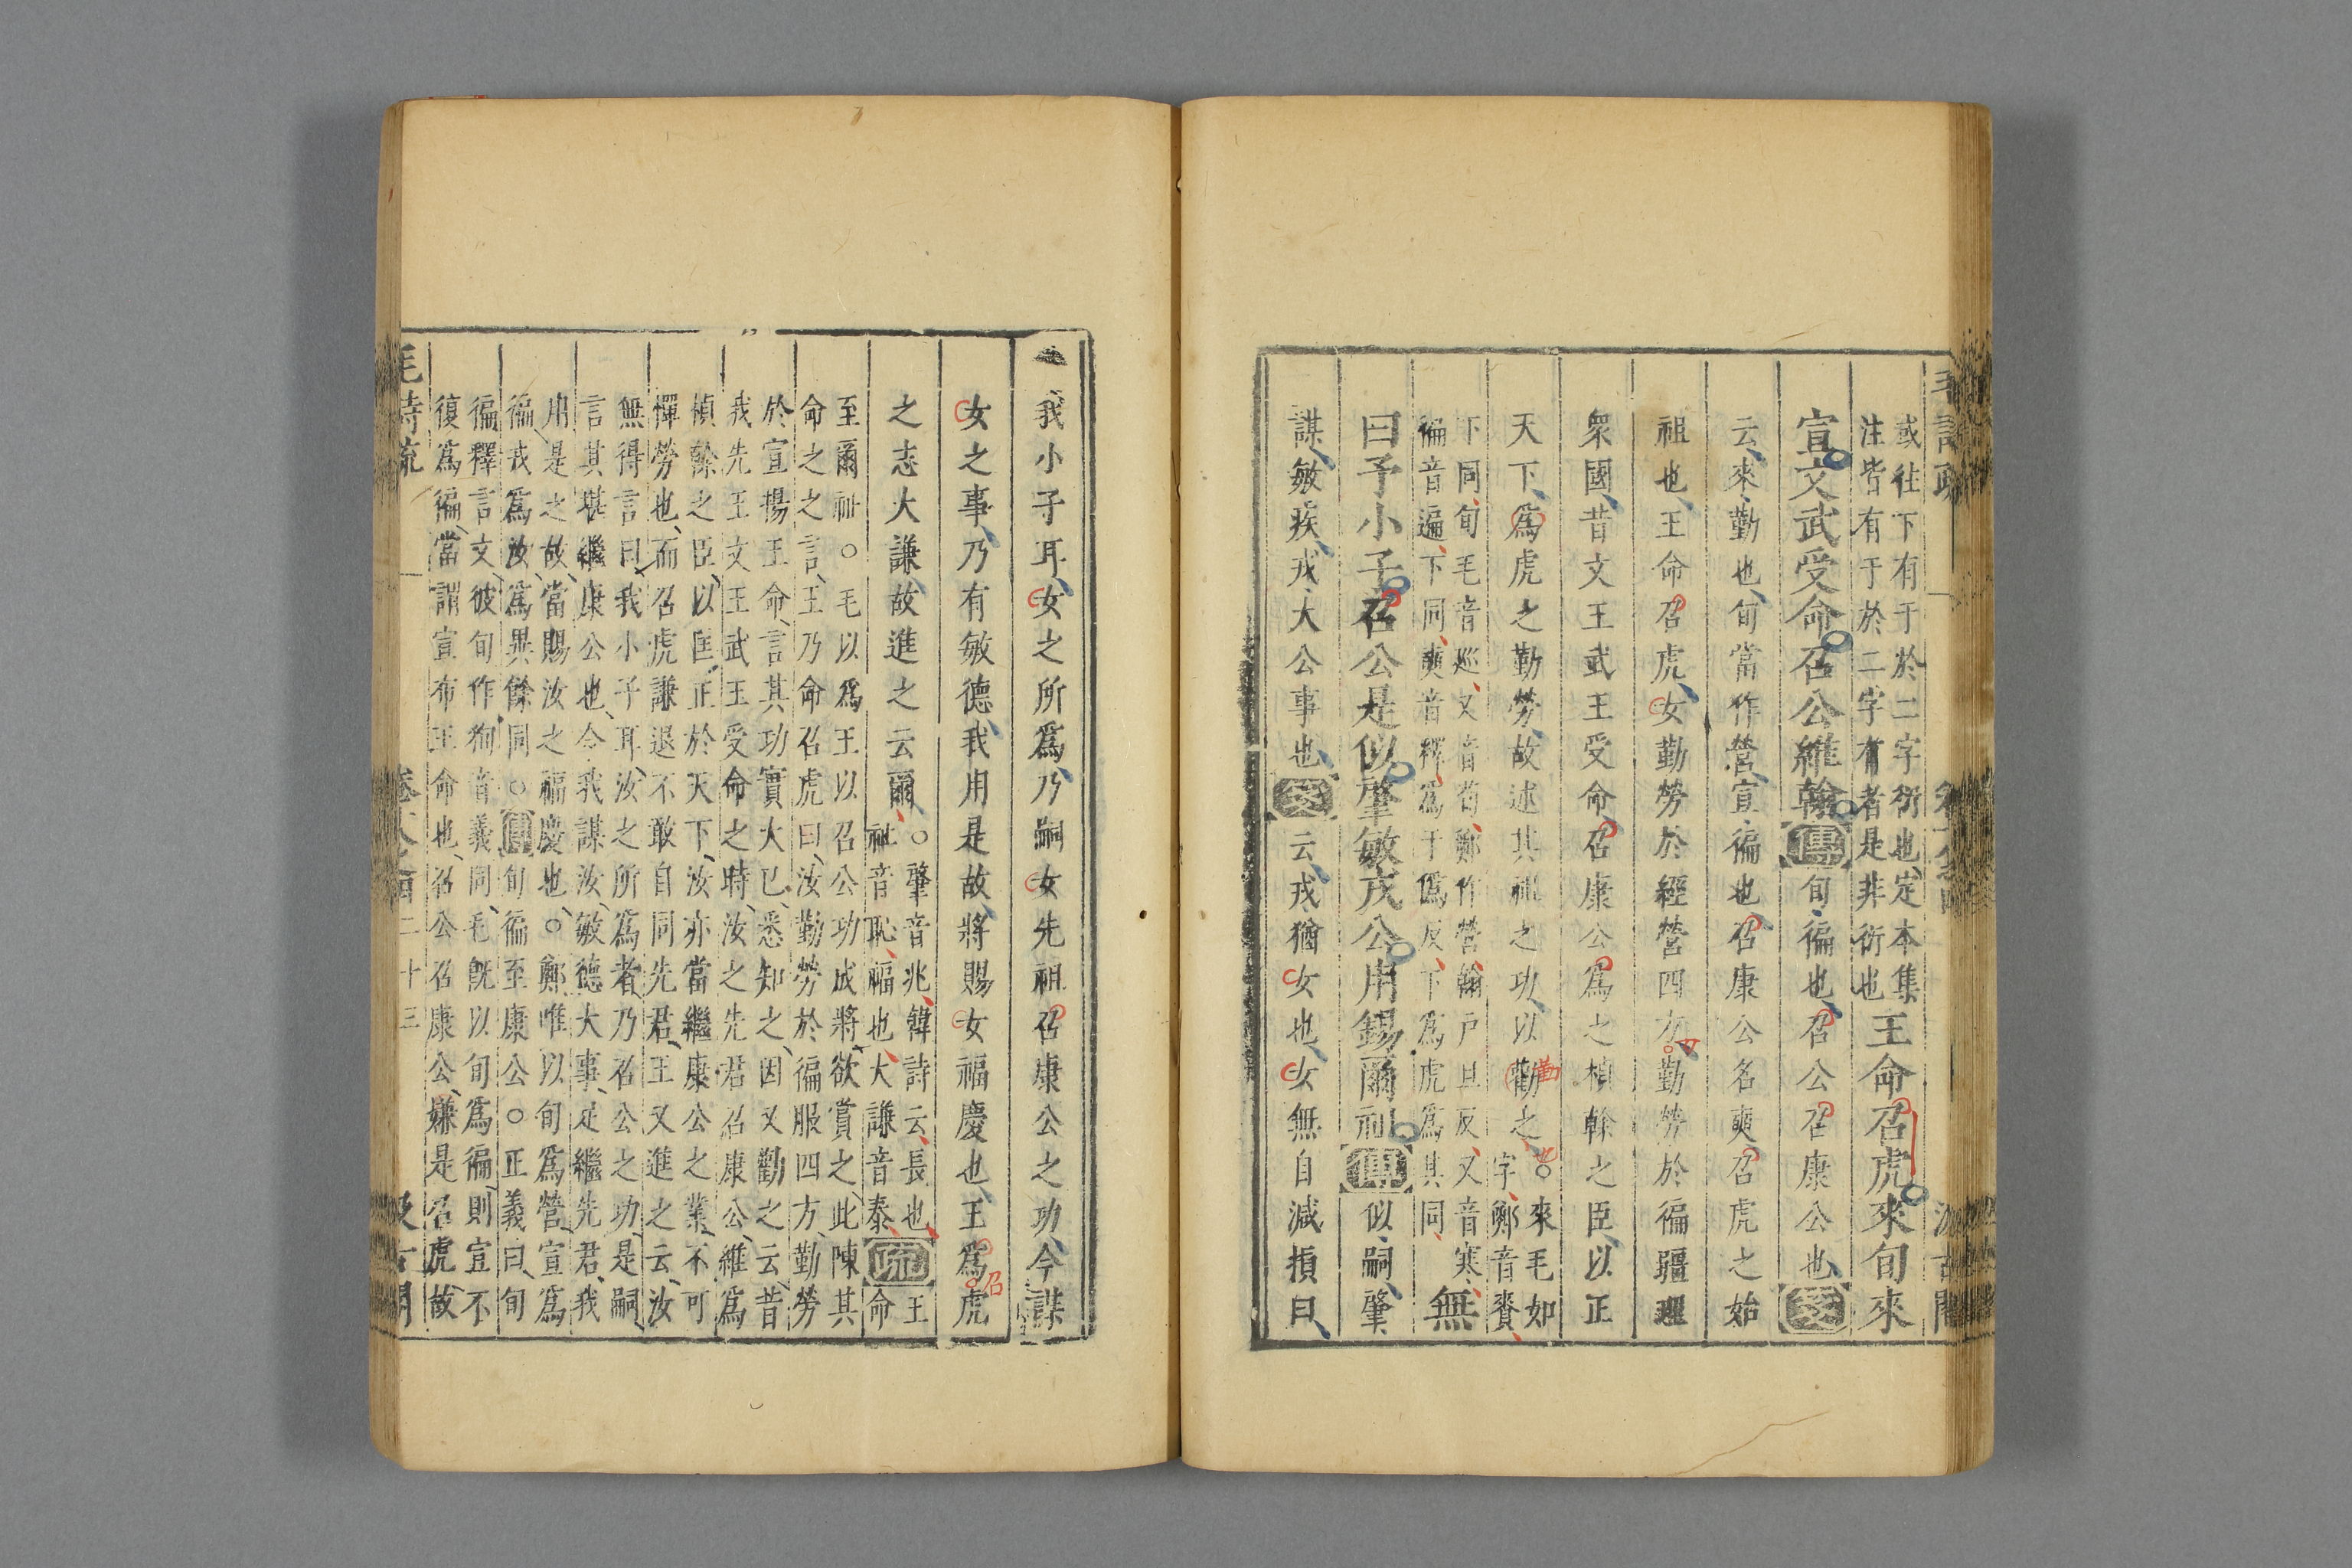 或往下有于於二字衍也定本集
注皆有于於二字有者是非衍也
王命召虎來旬來
宣文武受命召公維翰傳旬徧也召公召康公也箋
云來勤也旬當作營宣徧也召康公名奭召虎之始
祖也王命召虎女勤勞於經營四方勤勞於徧疆理
眾國昔文王武王受命召康公爲之楨幹之臣以正
天下爲虎之勤勞故述其祖之功以勸之○
來毛如
字鄭音賚
下同旬毛音巡又音荀鄭作營翰戶旦反又音寒
徧音遍下同奭音釋爲于僞反下爲虎爲其同
無
曰予小子召公是似肇敏戎公用錫爾祉傳似嗣肇
謀敏疾戎大公事也箋云戎猶女也女無自減損曰
我小子耳女之所爲乃嗣女先祖召康公之功今謀
女之事乃有敏德我用是故將賜女福慶也王爲虎
之志大謙故進之云爾
○肇音兆韓詩云長也
祉音恥福也大謙音泰
疏
王
命
至爾祉○毛以爲王以召公功成將欲賞之此陳其
命之之言王乃命召虎曰汝勤勞於徧服四方勤勞
於宣揚王命言其功實大已悉知之因又勸之云昔
我先王文王武王受命之時汝之先君召康公維爲
楨幹之臣以匡正於天下汝亦當繼康公之業不可
憚勞也而召虎謙退不敢自同先君王又進之云汝
無得言曰我小子耳汝之所爲者乃召公之功是嗣
言其堪繼康公也今我謀汝敏德大事定繼先君我
用是之故當賜汝之福慶也○鄭唯以旬爲營宣爲
徧戎爲汝爲異餘同○傳旬徧至康公○正義曰旬
徧釋言文彼旬作徇音義同毛旣以旬爲徧則宣不
復爲徧當謂宣布王命也召公召康公嫌是召虎故
毛詩疏
二十三